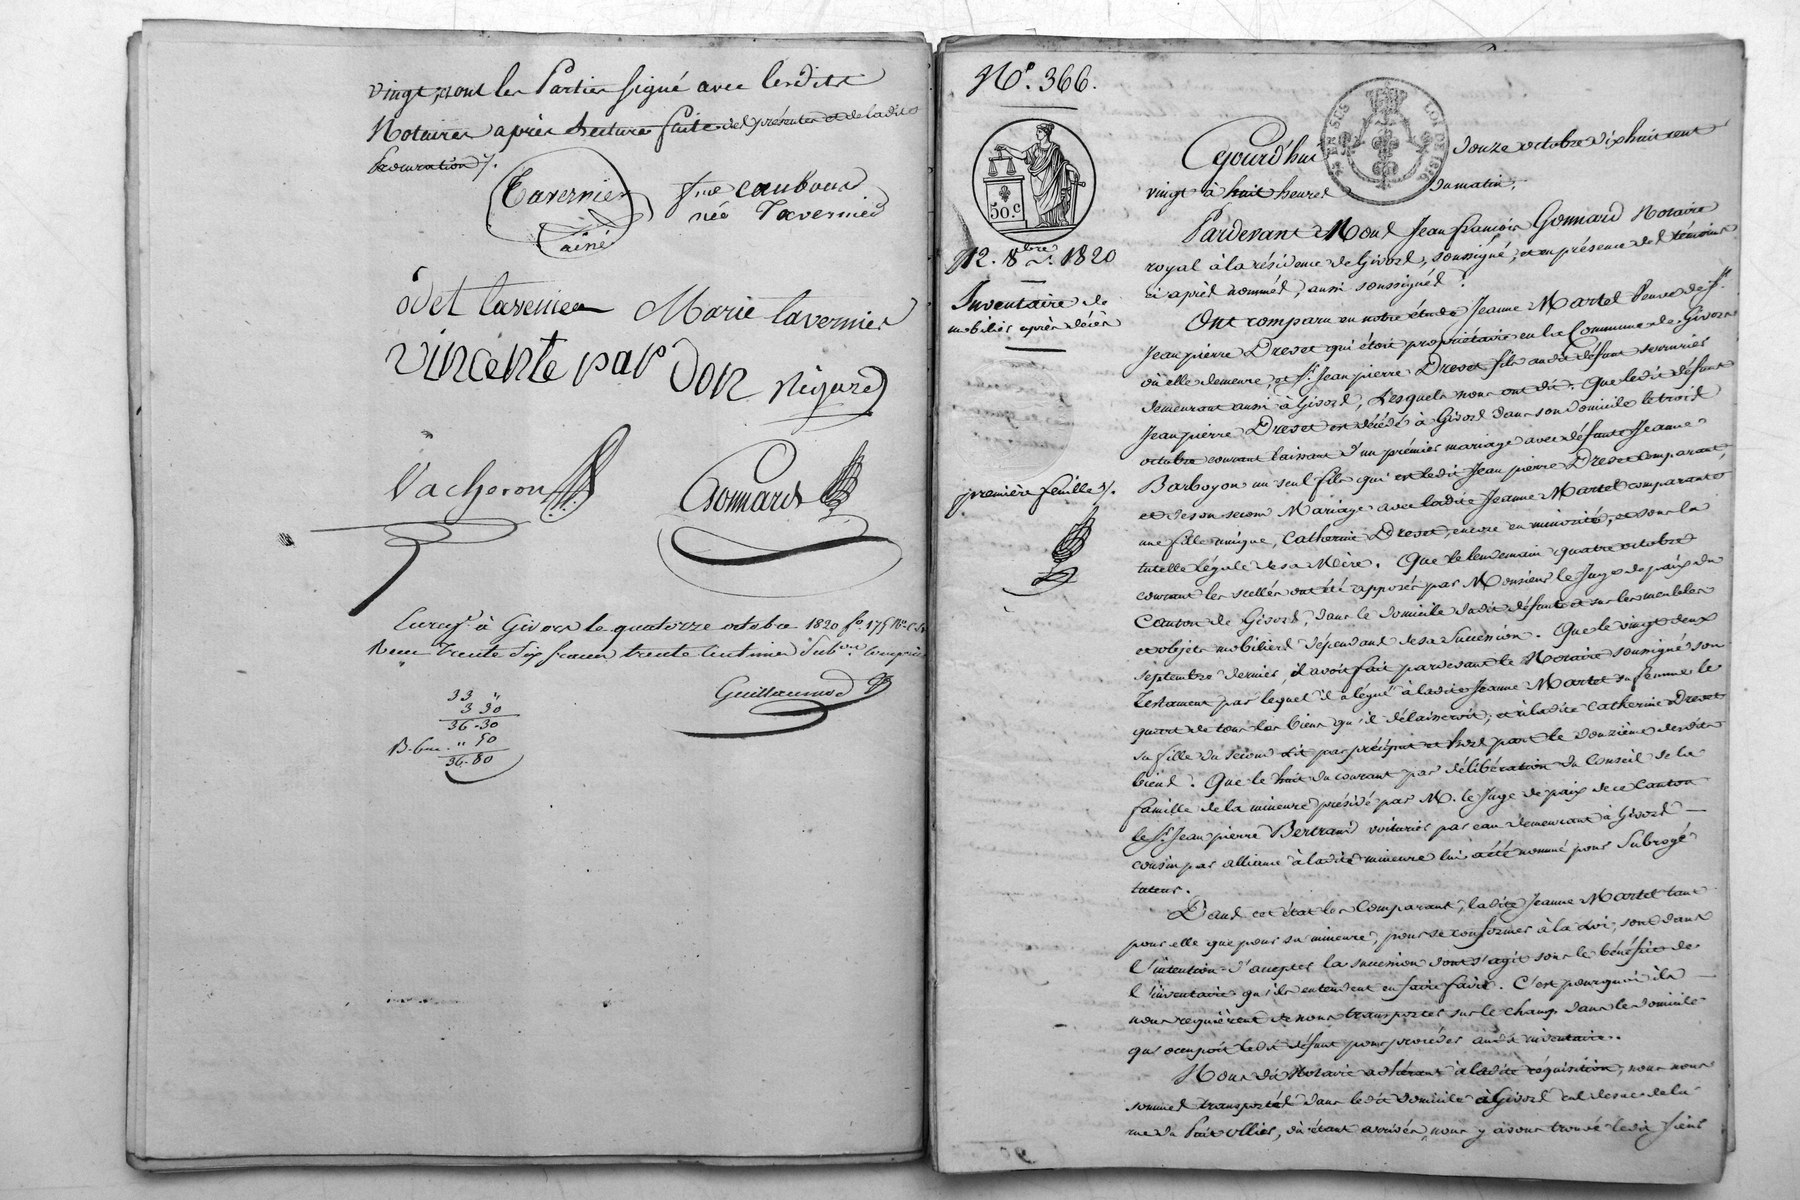 vingt, ont les Parties signé avec lesdits
Notaires après lecture faite des présentes et de ladite
procuration /.
Tavernier
ainé
fme caubour
née Tavernier
odet tavernier Marie tavernier
vincente pardon Nigard
Vacheron Gonnard
Enreg. à Givors le quatorze octobre 1820 fo. 175
Reçu trente six francs trente centimes Subon. comprise
33 "
3 30
36-30
" 50
36-80
Guillaumod
No. 366.
50.c
12. 8bre. 1820
Inventaire de
mobilier après décès
première feuille /.
LOI DE 1816
Cejourd'hui douze octobre dix huit cent
vingt à huit heures du matin,
Pardevant Nous Jean françois Gonnard Notaire
royal à la résidence de Givors, soussigné, et en présence des témoins
ci après nommés, aussi soussignés.
Ont comparu en notre étude Jeanne Martel Veuve de Sr.
Jean pierre Drevet qui étoit propriétaire en la Commune de Givors
où elle demeure, et Sr. Jean pierre Drevet fils audit défunt serrurier
demeurant aussi à Givors, Lesquels nous ont dit: Que ledit défunt
Jean pierre Drevet est décédé à Givors dans son domicile le trois
octobre courant laissant d'un premier mariage avec défunte Jeanne
Barboyon un seul fils qui est ledit Jean pierre Drevet comparant,
et de son second Mariage avec ladite Jeanne Martel comparante
une fille unique, Catherine Drevet, encore en minorité, et sous la
tutelle légale de sa Mère. Que le lendemain quatre octobre
courant les scellés ont été apposés par Monsieur le Juge de paix du
Canton de Givors, dans le domicile dudit défunt et sur les meubles
et objets mobiliers dépendant de sa Succession. Que le vingt deux
septembre dernier, il avoit fait pardevant le Notaire soussigné son
Testament par lequel il a légué à ladite Jeanne Martel sa femme le
quart de tous les biens qu'il délaisseroit, et à ladite Catherine Drevet
sa fille du second lit par préciput et hors part le douzième desdits
biens. Que le huit du courant par délibération du Conseil de la
famille de la mineure présidé par M. le Juge de paix de ce Canton
le Sr. Jean pierre Bertrand voiturier par eau demeurant à Givors
cousin par alliance à ladite mineure lui a été nommé pour Subrogé
tuteur.
Dans cet état les Comparants, ladite Jeanne Martel tant
pour elle que pour sa mineure, pour se conformer à la Loi, sont dans
l'intention d'accepter la succession dont s'agit sous le bénéfice de
l'inventaire qu'ils entendent en faire faire. C'est pourquoi ils
nous requièrent de nous transporter sur le champ dans le domicile
qu'occupoit ledit défunt pour procéder audit inventaire.
Nous dit Notaire adhérant à ladite réquisition, nous nous
sommes transporté dans ledit domicile à Givors
rue du Puit ollier, où étant arrivés, nous y avons trouvé ledit sieur